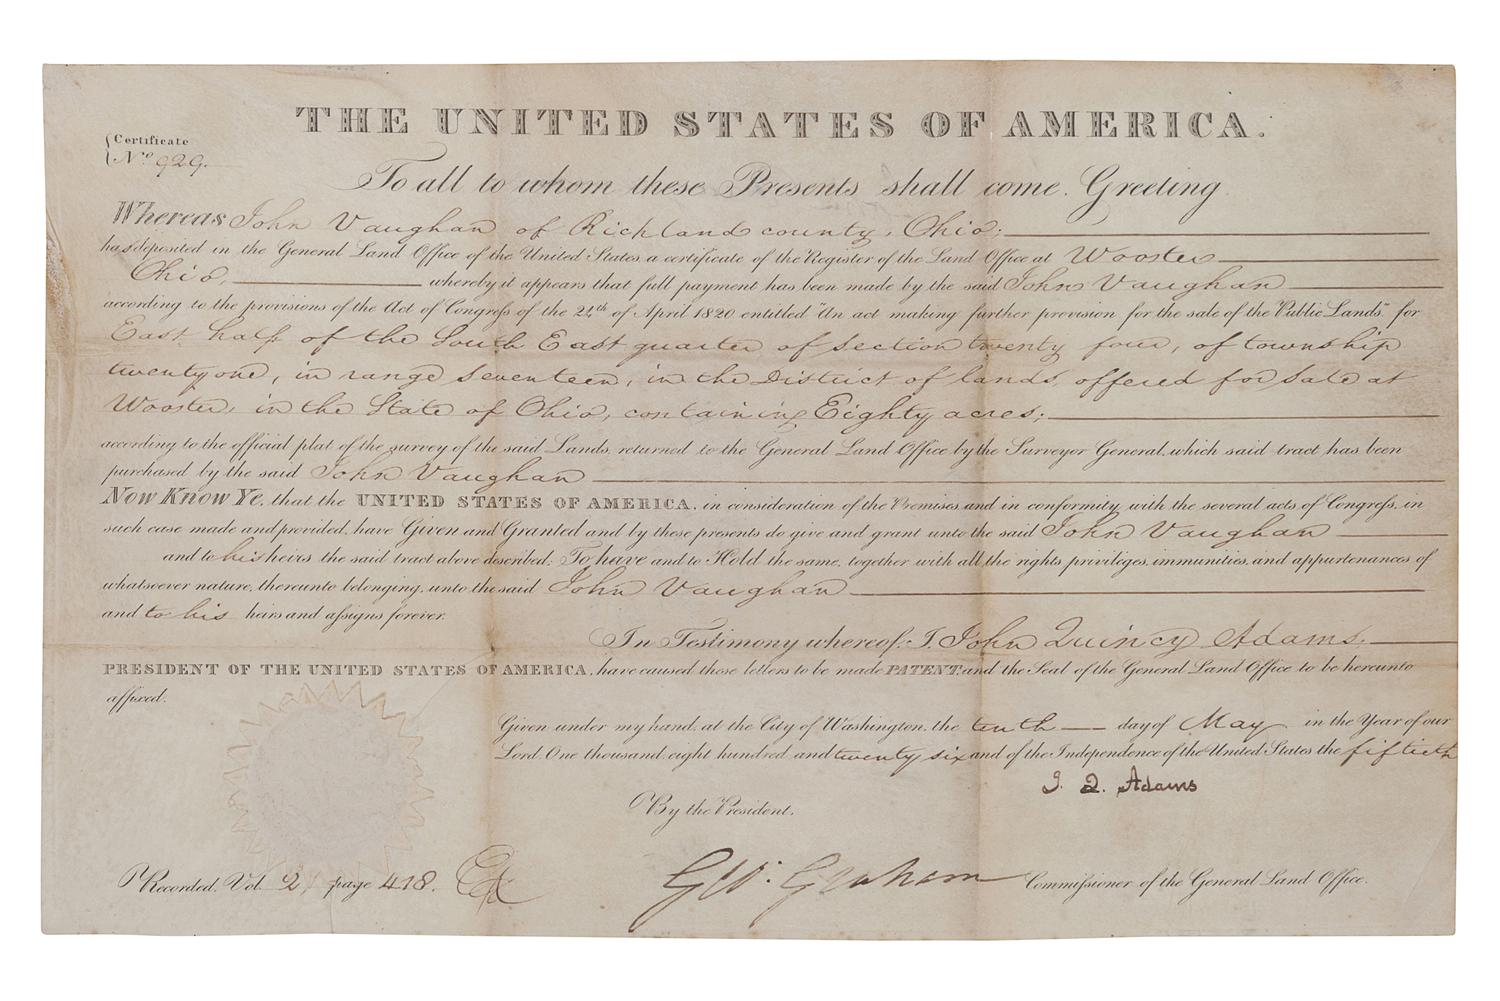 THE UNITED STATES OF AMERICA.
Certificate
No. 929.
To all to whom these Presents shall come, Greeting
Whereas John Vaughan of Richland county, Ohio,
has deposited in the General Land Office of the United States, a certificate of the Register of the Land Office at Wooster
Ohio, whereby it appears that full payment has been made by the said John Vaughan
according to the provisions of the Act of Congress of the 24th of April 1820 entitled "An act making further provision for the sale of the Public Lands", for
East half of the South East quarter of section twenty four, of township
twenty one, in range seventeen, in the District of lands offered for Sale at
Wooster, in the State of Ohio, containing Eighty acres;
according to the official plat of the survey of the said Lands, returned to the General Land Office by the Surveyor General, which said tract has been
purchased by the said John Vaughan
Now Know Ye, that the UNITED STATES OF AMERICA, in consideration of the Premises, and in conformity with the several acts of Congress, in
such case made and provided, have Given and Granted and by these presents do give and grant unto the said John Vaughan
and to his heirs the said tract above described: To have and to Hold the same, together with all the rights, privileges, immunities, and appurtenances of
whatsoever nature, thereunto belonging, unto the said John Vaughan
and to his heirs and assigns forever.
In Testimony whereof, I, John Quincy Adams.
PRESIDENT OF THE UNITED STATES OF AMERICA, have caused these letters to be made PATENT, and the Seal of the General Land Office to be hereunto
affixed.
Given under my hand, at the City of Washington, the tenth day of May in the Year of our
Lord, One thousand eight hundred and twenty six and of the Independence of the United States the fiftieth
J. Q. Adams
By the President,
Recorded, Vol. 2 page 418. Ex
G W. Graham Commissioner of the General Land Office.